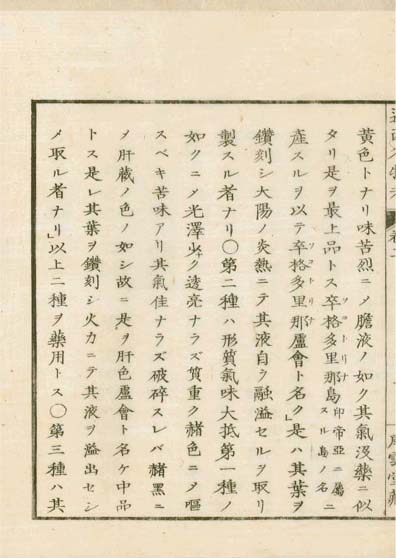 黄色トナリ味苦烈ニメ膽液ノ如ク其氣沒藥ニ似
タリ是ヲ最上品トス卒格多里那島印帝亞ニ屬スル島ノ名ニ
ソコトリナ
產スルヲ以テ卒格多里那盧會ト名ク」是ハ其葉ヲ
ソコトリナ
鑽刻シ太陽ノ炎熱ニテ其液自ラ融溢セルヲ取リ
製スル者ナリ○第二種ハ形質氣味大抵第一種ノ
如クニメ光澤少ク透亮ナラズ質重ク赭色ニメ嘔
スベキ苦味アリ其氣佳ナラズ破碎スレバ赭黑ニ
メ肝藏ノ色ノ如シ故ニ是ヲ肝色盧會ト名ケ中品
トス是レ其葉ヲ鑽刻シ火力ニテ其液ヲ溢出セシ
メ取ル者ナリ」以上二種ヲ藥用トス○第三種ハ其